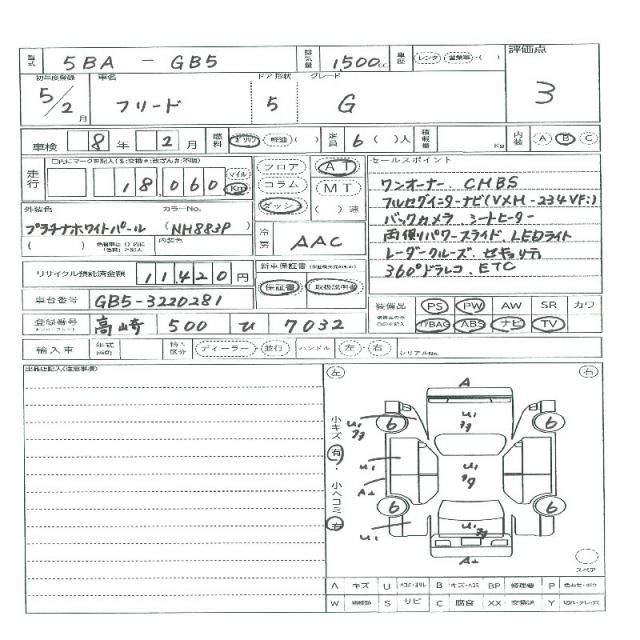 型式 5BA - GB5 排気量 1,500cc 車歴 レンタ・営業車・( ) 評価点
初年度登録 車名 ドア形状 グレード
5/2月 フリード 5 G 3
車検 8年 2月 燃料 ガソリン・軽油・( ) 定員 6( )人 積載量 Kg 内装 A B C
走行 18,060 マイル Km フロア AT セールスポイント
コラム MT ワンオーナー、CMBS
外装色 カラーNo. ダッシュ ( )速 フルセグインターナビ(VXM-234VFi)
プラチナホワイトパール (NH883P) バックカメラ シートヒーター
( ) 内装色 冷房 AAC 両側パワースライド、LEDライト
レーダークルーズ、セキュリティ
リサイクル預託済金額 11420円 新車保証書 360°ドラレコ、ETC
車台番号 GB5-3220281 保証書 取扱説明書
装備品 PS PW AW SR カワ
登録番号 高崎 500 ひ 7032 ｱﾊﾞBAG ABS ナビ TV
輸入車 年式 輸入区分 ディーラー・並行 ハンドル 左・右 シリアルNo.
出品店記入(注意事項) 左 右
A
小キズ 有・小ヘコミ 有
6 U1 U1 6
U1 U1
A2
6 6
U1
A2
スペア
A キズ U B キズ・ヘコミ BP 修理跡 P
W S サビ C 腐食 XX 交換済 Y